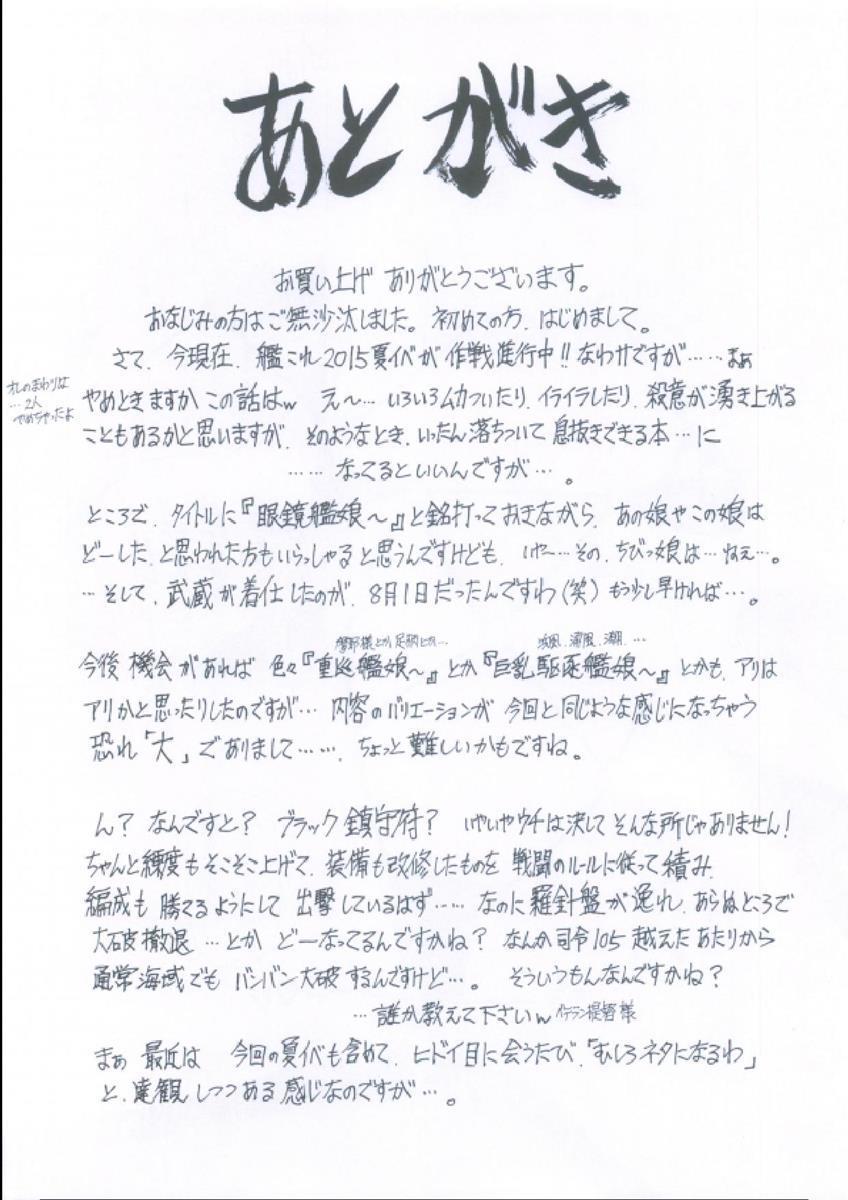 あとがき
お買い上げ ありがとうございます。
おなじみの方はご無沙汰しました。初めての方、はじめまして。
さて、今現在、艦これ2015夏イベが作戦進行中!! なわけですが……まぁ
オレのまわりは
…2人
やめちゃったよ
やめときますか この話はw え〜… いろいろムカついたり、イライラしたり、殺意が湧き上がる
こともあるかと思いますが、そのようなとき、いったん落ちついて 息抜きできる本…に
……なってるといいんですが…。
ところで、タイトルに『眼鏡艦娘〜』と銘打っておきながら、あの娘やこの娘は
どーした、と思われた方もいらっしゃると思うんですけども、いやー…その、ちびっ娘は…ねぇ…。
…そして、武蔵が着任したのが、8月1日だったんですわ(笑) もう少し早ければ…。
摩耶様とか足柄とか…
浜風、浦風、潮、…
今後 機会があれば 色々『重巡艦娘〜』とか『巨乳駆逐艦娘〜』とかも、アリは
アリかと思ったりしたのですが… 内容のバリエーションが 今回と同じような感じになっちゃう
恐れ「大」でありまして……、ちょっと難しいかもですね。
ん? なんですと? ブラック鎮守府? いやいやウチは決してそんな所じゃありません!
ちゃんと練度もそこそこ上げて、装備も改修したものを 戦闘のルールに従って積み、
編成も 勝てるようにして 出撃しているはず…… なのに羅針盤が逸れ、あらぬところで
大破撤退 …とか どーなってるんですかね? なんか司令105越えたあたりから
通常海域でも バンバン大破するんですけど…。 そういうもんなんですかね?
…誰か教えて下さいw ベテラン提督様
まぁ 最近は 今回の夏イベも含めて、ヒドイ目に会うたび、「むしろネタになるわ」
と、達観しつつある感じなのですが…。